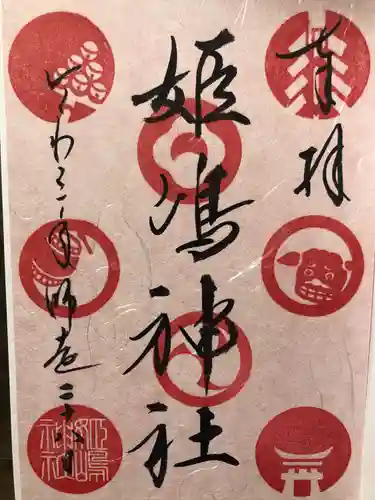 奉拝
姫嶋神社
令和二年師走二十六日
姫嶋神社